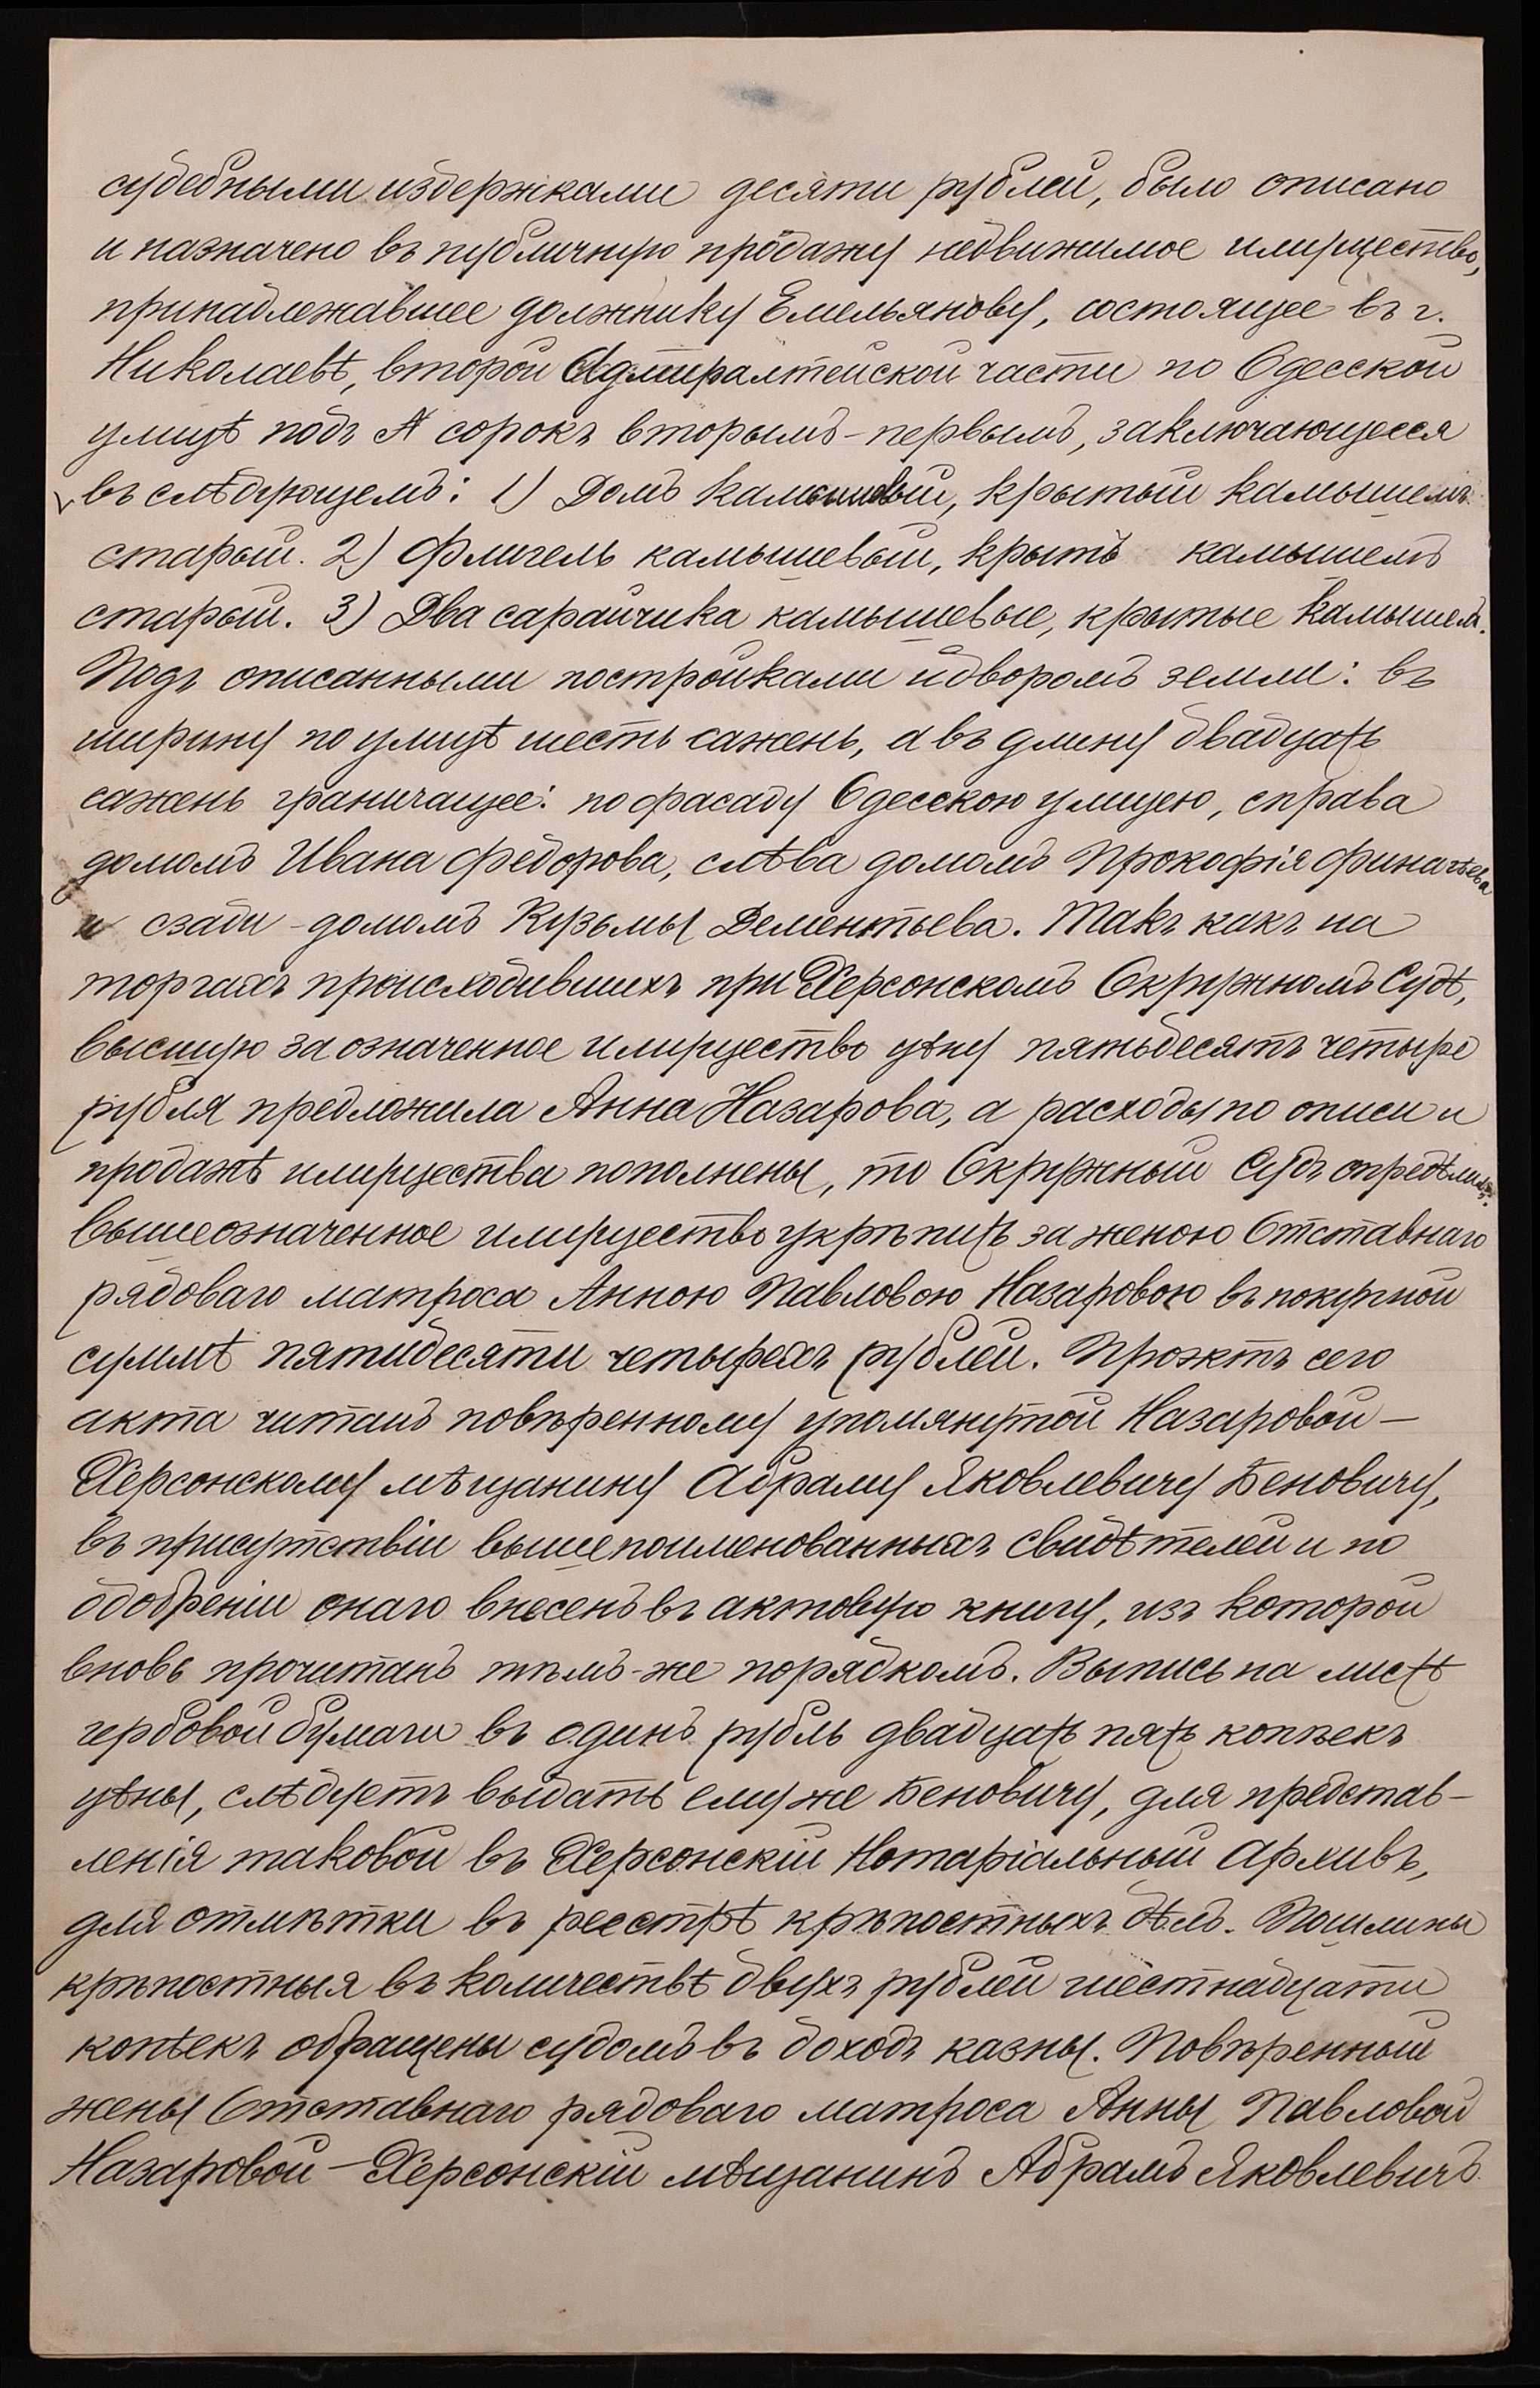 судебными издержками десяти рублей, было описано
и назначено въ публичную продажу недвижимое имущество,
принадлежавшее должнику Емельянову, состоящее въ г.
Николаевѣ, второй Адмиралтейской части по Одесской
улицѣ подъ № сорокъ вторымъ-первымъ, заключающееся
въ слѣдующемъ: 1) Домъ камышевый, крытый камышемъ
старый. 2) Флигель камышевый, крытъ камышемъ
старый. 3) Два сарайчика камышевые, крытые камышемъ.
Подъ описанными постройками и дворомъ земли: въ
ширину по улицѣ шесть сажень, а въ длину двадцать
сажень граничащее: по фасаду Одесскою улицею, справа
домомъ Ивана Федорова, слѣва домомъ Прокофія
и сзади - домомъ Кузьмы Дементьева. Такъ какъ на
торгахъ происходившихъ при Херсонскомъ Окружномъ Судѣ,
высшую за означенное имущество цѣну пятьдесятъ четыре
рубля предложила Анна Назарова, а расходы по описи и
продажѣ имущества пополнены, то Окружный Судъ опредѣлилъ:
вышеозначенное имущество укрѣпить за женою Отставнаго
рядоваго матроса Анною Павловою Назаровою въ покупной
суммѣ пятидесяти четырехъ рублей. Проэктъ сего
акта читанъ повѣренному упомянутой Назаровой -
Херсонскому мѣщанину Абраму Яковлевичу Беновичу,
въ присутствіи вышепоименованныхъ свидѣтелей и по
одобреніи онаго внесенъ въ актовую книгу, изъ которой
вновь прочитанъ тѣмъ-же порядкомъ. Выпись на листѣ
гербовой бумаги въ одинъ рубль двадцать пять копѣекъ
цѣны, слѣдуетъ выдать ему же Беновичу, для представ-
ленія таковой въ Херсонскій Нотаріальный Архивъ,
для отмѣтки въ реестрѣ крѣпостныхъ дѣлъ. Пошлины
крѣпостныя въ количествѣ двухъ рублей шестнадцати
копѣекъ обращены судомъ въ доходъ казны. Повѣренный
жены Отставнаго рядоваго матроса Анны Павловой
Назаровой - Херсонскій мѣщанинъ Абрамъ Яковлевичъ